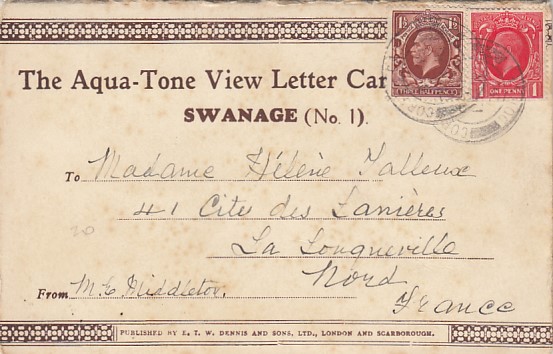 The Aqua-Tone View Letter Car
SWANAGE (No. 1).
1½ 1½
THREE HALFPENCE
1 ONE PENNY 1
To Madame Hélène Talleux
41 Cité des Lanières
La Longueville
Nord
France
20
From M. E. Middleton.
PUBLISHED BY E. T. W. DENNIS AND SONS, LTD., LONDON AND SCARBOROUGH.